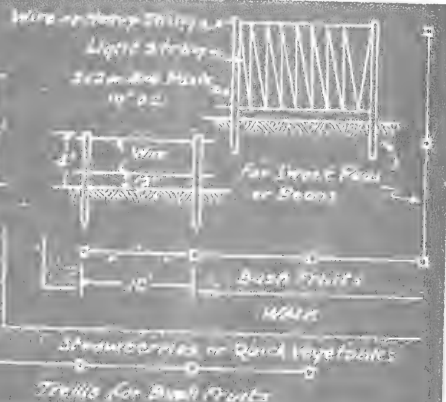 Wire or Heavy String
Light String
10" o.c.
Wire
For Sweet Peas
or Beans
10'
Bush Fruits
Walk
Strawberries or Quick Vegetables
Trellis for Bush Fruits